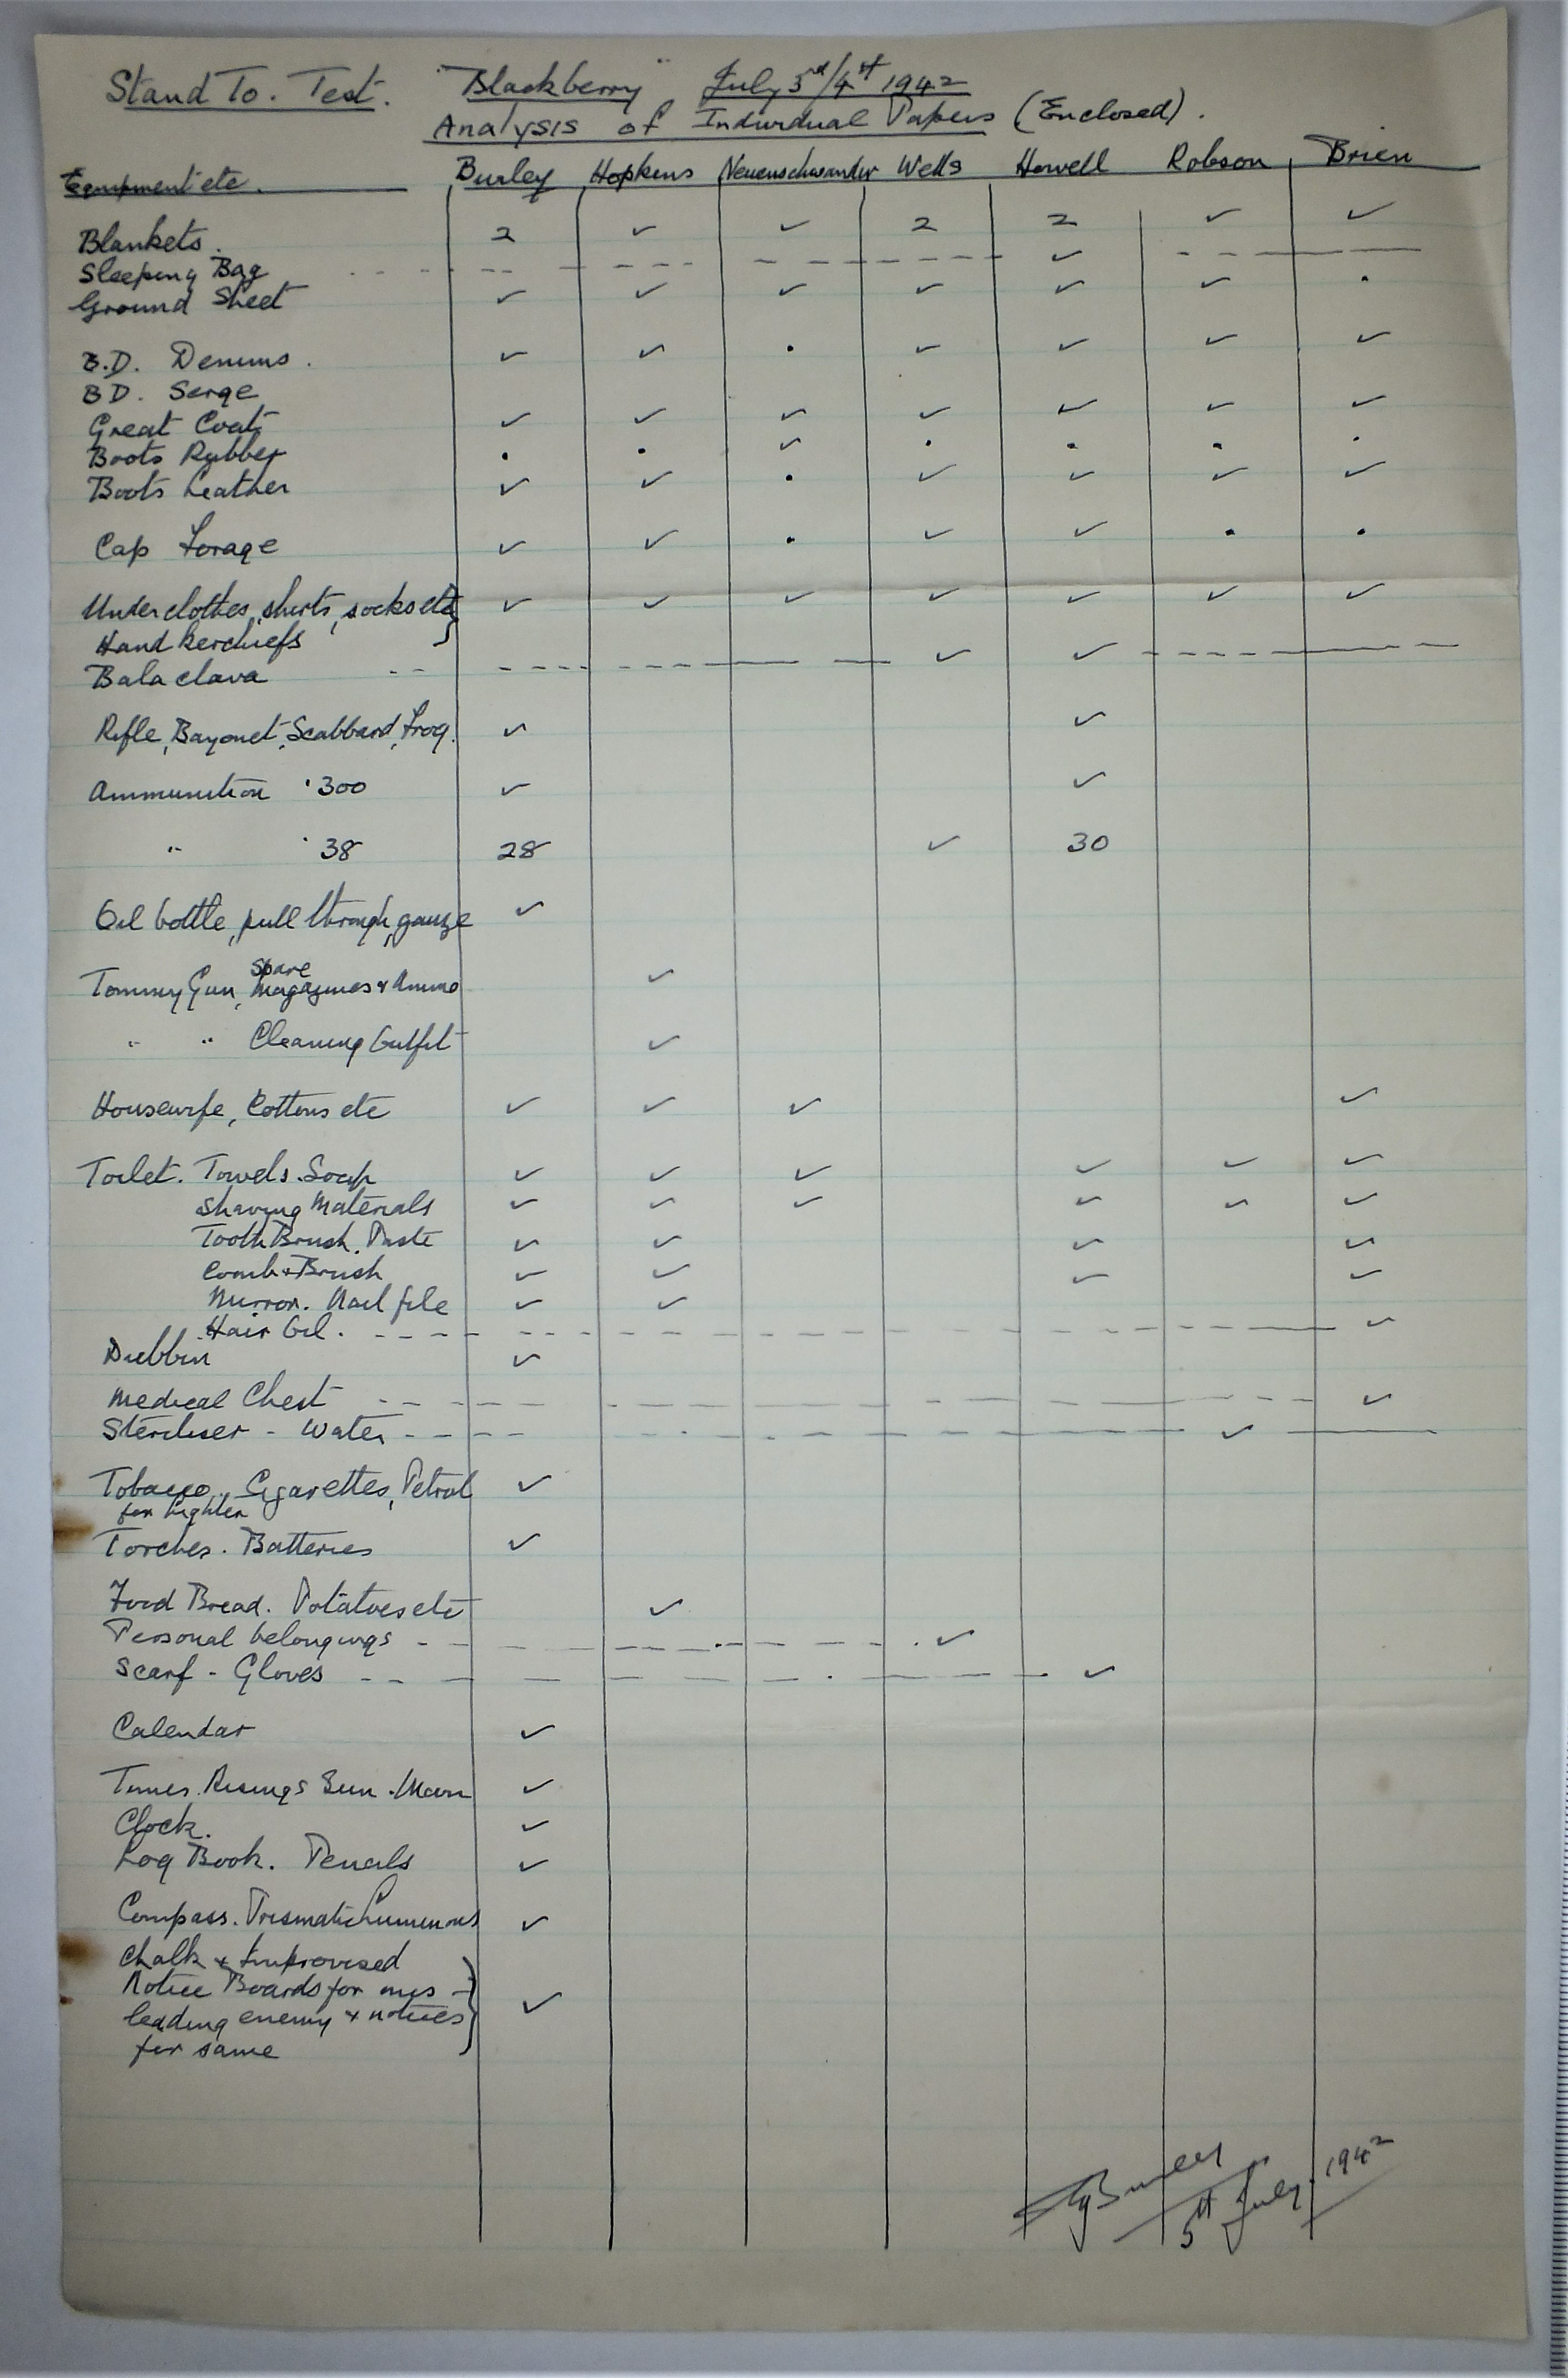 Stand To. Test. "Blackberry" July 3rd/4st 1942
Analysis of Individual Papers (Enclosed).
Equipment etc. Burley Hopkins Neuenschwander Wells Howell Robson Brien
Blankets. 2 ✓ ✓ 2 2 ✓ ✓
Sleeping Bag ✓
Ground Sheet ✓ ✓ ✓ ✓ ✓ ✓ •
B.D. Denims. ✓ ✓ • ✓ ✓ ✓ ✓
BD. Serge
Great Coat ✓ ✓ ✓ ✓ ✓ ✓ ✓
Boots Rubber • • ✓ • • • •
Boots Leather ✓ ✓ • ✓ ✓ ✓ ✓
Cap Forage ✓ ✓ • ✓ ✓ • •
Underclothes, shirts, socks etc } ✓ ✓ ✓ ✓ ✓ ✓ ✓
Handkerchiefs
Balaclava ✓ ✓
Rifle, Bayonet, Scabbard, Frog. ✓ ✓
Ammunition ·300 ✓ ✓
" ·38 28 ✓ 30
Oil bottle, pull through, gauze ✓
Tommy Gun, Spare Magazines & Ammo ✓
" " Cleaning Outfit ✓
Housewife, Cottons etc ✓ ✓ ✓ ✓
Toilet. Towels. Soap ✓ ✓ ✓ ✓ ✓ ✓
Shaving Materials ✓ ✓ ✓ ✓ ✓ ✓
Tooth Brush. Paste ✓ ✓ ✓ ✓
Comb & Brush ✓ ✓ ✓ ✓
Mirror. Nail file ✓ ✓
Hair Oil. ✓
Dubbin ✓
Medical Chest ✓
Steriliser - Water ✓
Tobacco, Cigarettes, Petrol ✓
for Lighter
Torches. Batteries ✓
Food Bread. Potatoes etc ✓
Personal belongings ✓
Scarf - Gloves ✓
Calendar ✓
Times. Risings Sun. Moon ✓
Clock. ✓
Log Book. Pencils ✓
Compass. Prismatic Luminous ✓
Chalk & Improvised
Notice Boards for mis-
leading enemy & notices } ✓
for same
Burley
5st July. 1942